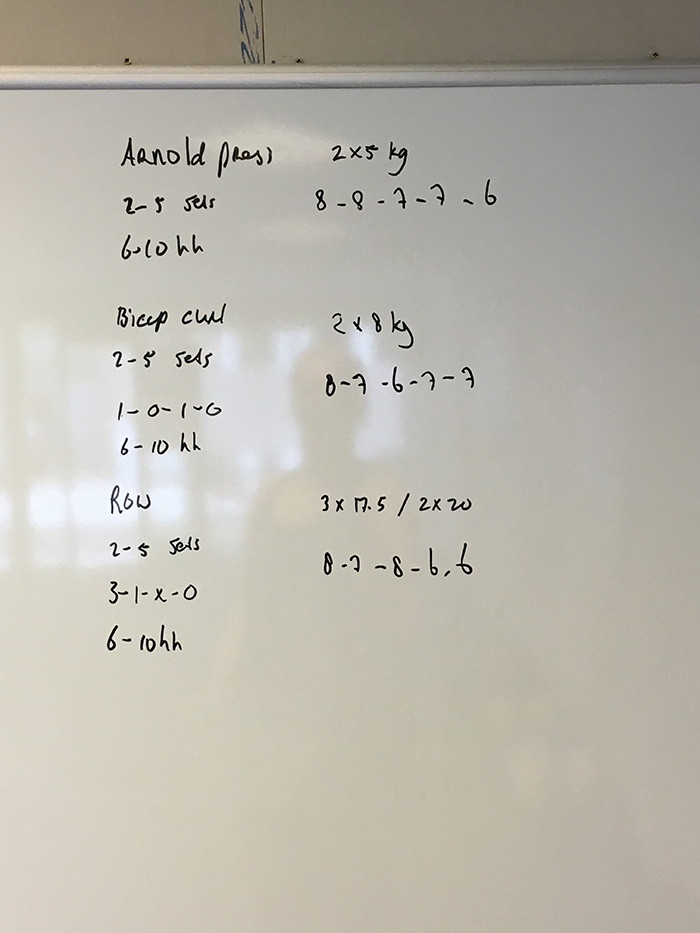 Arnold press 2x5 kg
2-5 sets 8-8-7-7-6
6-10 hh
Bicep curl 2x8 kg
2-5 sets 8-7-6-7-7
1-0-1-0
6-10 hh
Row 3x17.5 / 2x20
2-5 sets 8-7-8-6,6
3-1-x-0
6-10hh